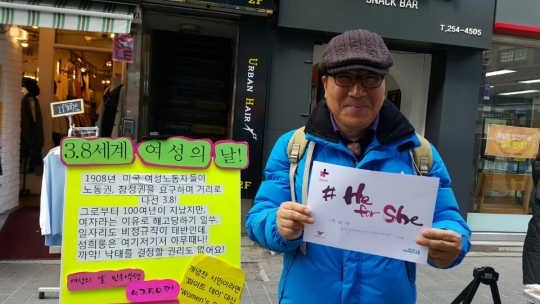 SNACK BAR
T.254-4505
2F
URBAN HAIR
3.8세계 여성의 날!
1908년 미국 여성노동자들이
노동권, 참정권을 요구하며 거리로
나선 3.8!
그로부터 100여년이 지났지만,
여자라는 이유로 해고당하기 일쑤.
일자리도 비정규직이 태반인데,
성희롱은 여기저기서 아무때나!
까악! 낙태를 결정할 권리도 없어요!
여성의 날
개념찬 시민이라면
"화이트 데이" 대신
"Women's
# He
for She